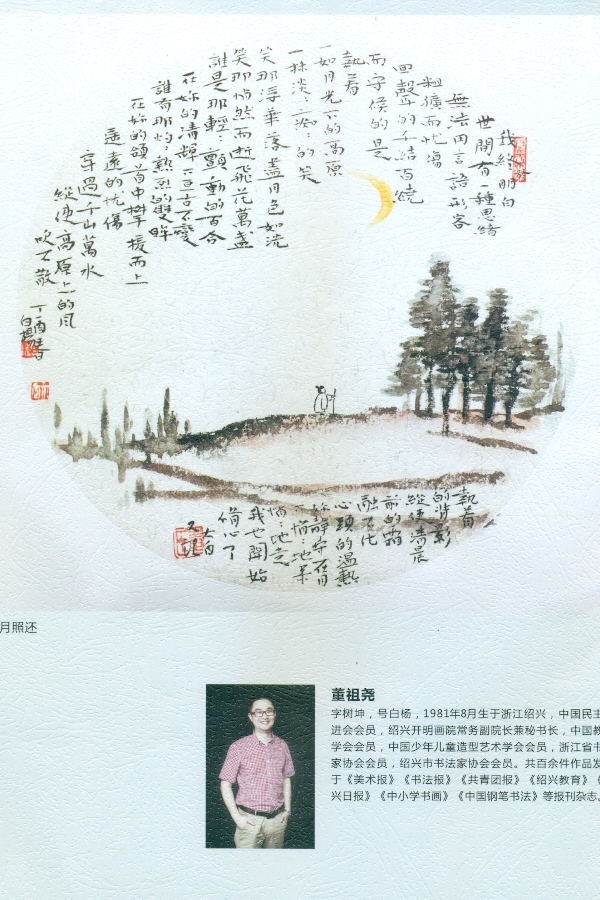 我終明白
世間有一種思緒
無法用言語形容
粗獷而憂傷
回聲的千結百繞
而守候的是
執着
一如月光下的高原
一抹淡淡痴痴的笑
笑那浮華落盡月色如洗
笑那悄然而逝飛花萬盞
誰是那輕輕顫動的百合
在妳的清輝亘古不變
誰有那灼熱烈的雙眸
在妳的頷首中攀援而上
遙遠的憂傷
穿過千山萬水
縱使高原上的風
吹不散
丁酉
白楊
執着
的背影
縱使清晨
前的霜
融不化
心頭的溫熱
靜守在月
地來
地走
我也開始
心了
月照还
董祖尧
字树坤，号白杨，1981年8月生于浙江绍兴，中国民主
进会会员，绍兴开明画院常务副院长兼秘书长，中国教
学会会员，中国少年儿童造型艺术学会会员，浙江省书
家协会会员，绍兴市书法家协会会员。共百余件作品发
于《美术报》《书法报》《共青团报》《绍兴教育》《
兴日报》《中小学书画》《中国钢笔书法》等报刊杂志。